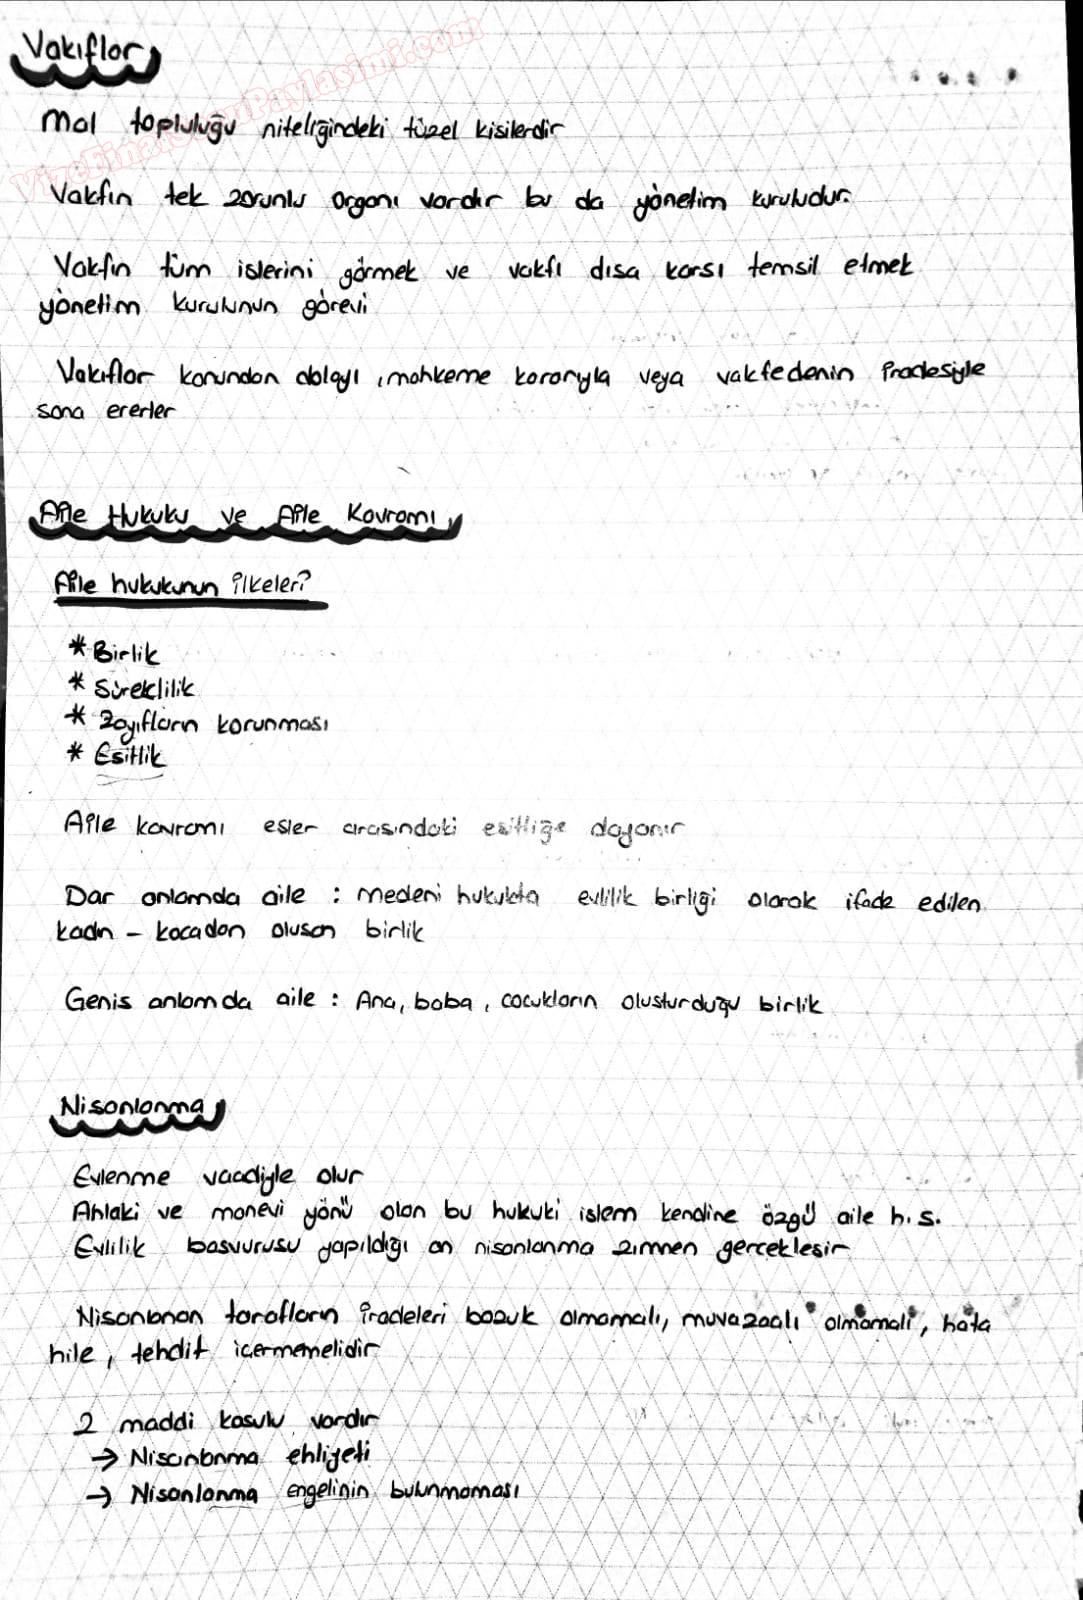 Vakıflar
VizeFinalSoruPaylasimi.com
Mal topluluğu niteliğindeki tüzel kisilerdir
Vakfın tek zorunlu organı vardır bu da yönetim kuruludur.
Vakfın tüm islerini görmek ve vakfı dısa karsı temsil etmek
yönetim kurulunun görevi
Vakıflar kanundan dolayı, mahkeme kararıyla veya vakfedenin iradesiyle
sona ererler
Aile Hukuku ve Aile Kavramı
Aile hukukunun ilkeleri?
* Birlik
* Süreklilik
* Zayıfların korunması
* Esitlik
Aile kavramı esler arasındaki esitliğe dayanır
Dar anlamda aile : medeni hukukta evlilik birliği olarak ifade edilen
kadın - kocadan olusan birlik
Genis anlamda aile : Ana, baba, cocukların olusturduğu birlik
Nisanlanma
Evlenme vaadiyle olur
Ahlaki ve manevi yönü olan bu hukuki islem kendine özgü aile h.s.
Evlilik basvurusu yapıldığı an nisanlanma zımnen gerceklesir
Nisanlanan tarafların iradeleri bozuk olmamalı, muvazaalı olmamalı, hata
hile, tehdit icermemelidir
2 maddi kosulu vardır
→ Nisanlanma ehliyeti
→ Nisanlanma engelinin bulunmaması